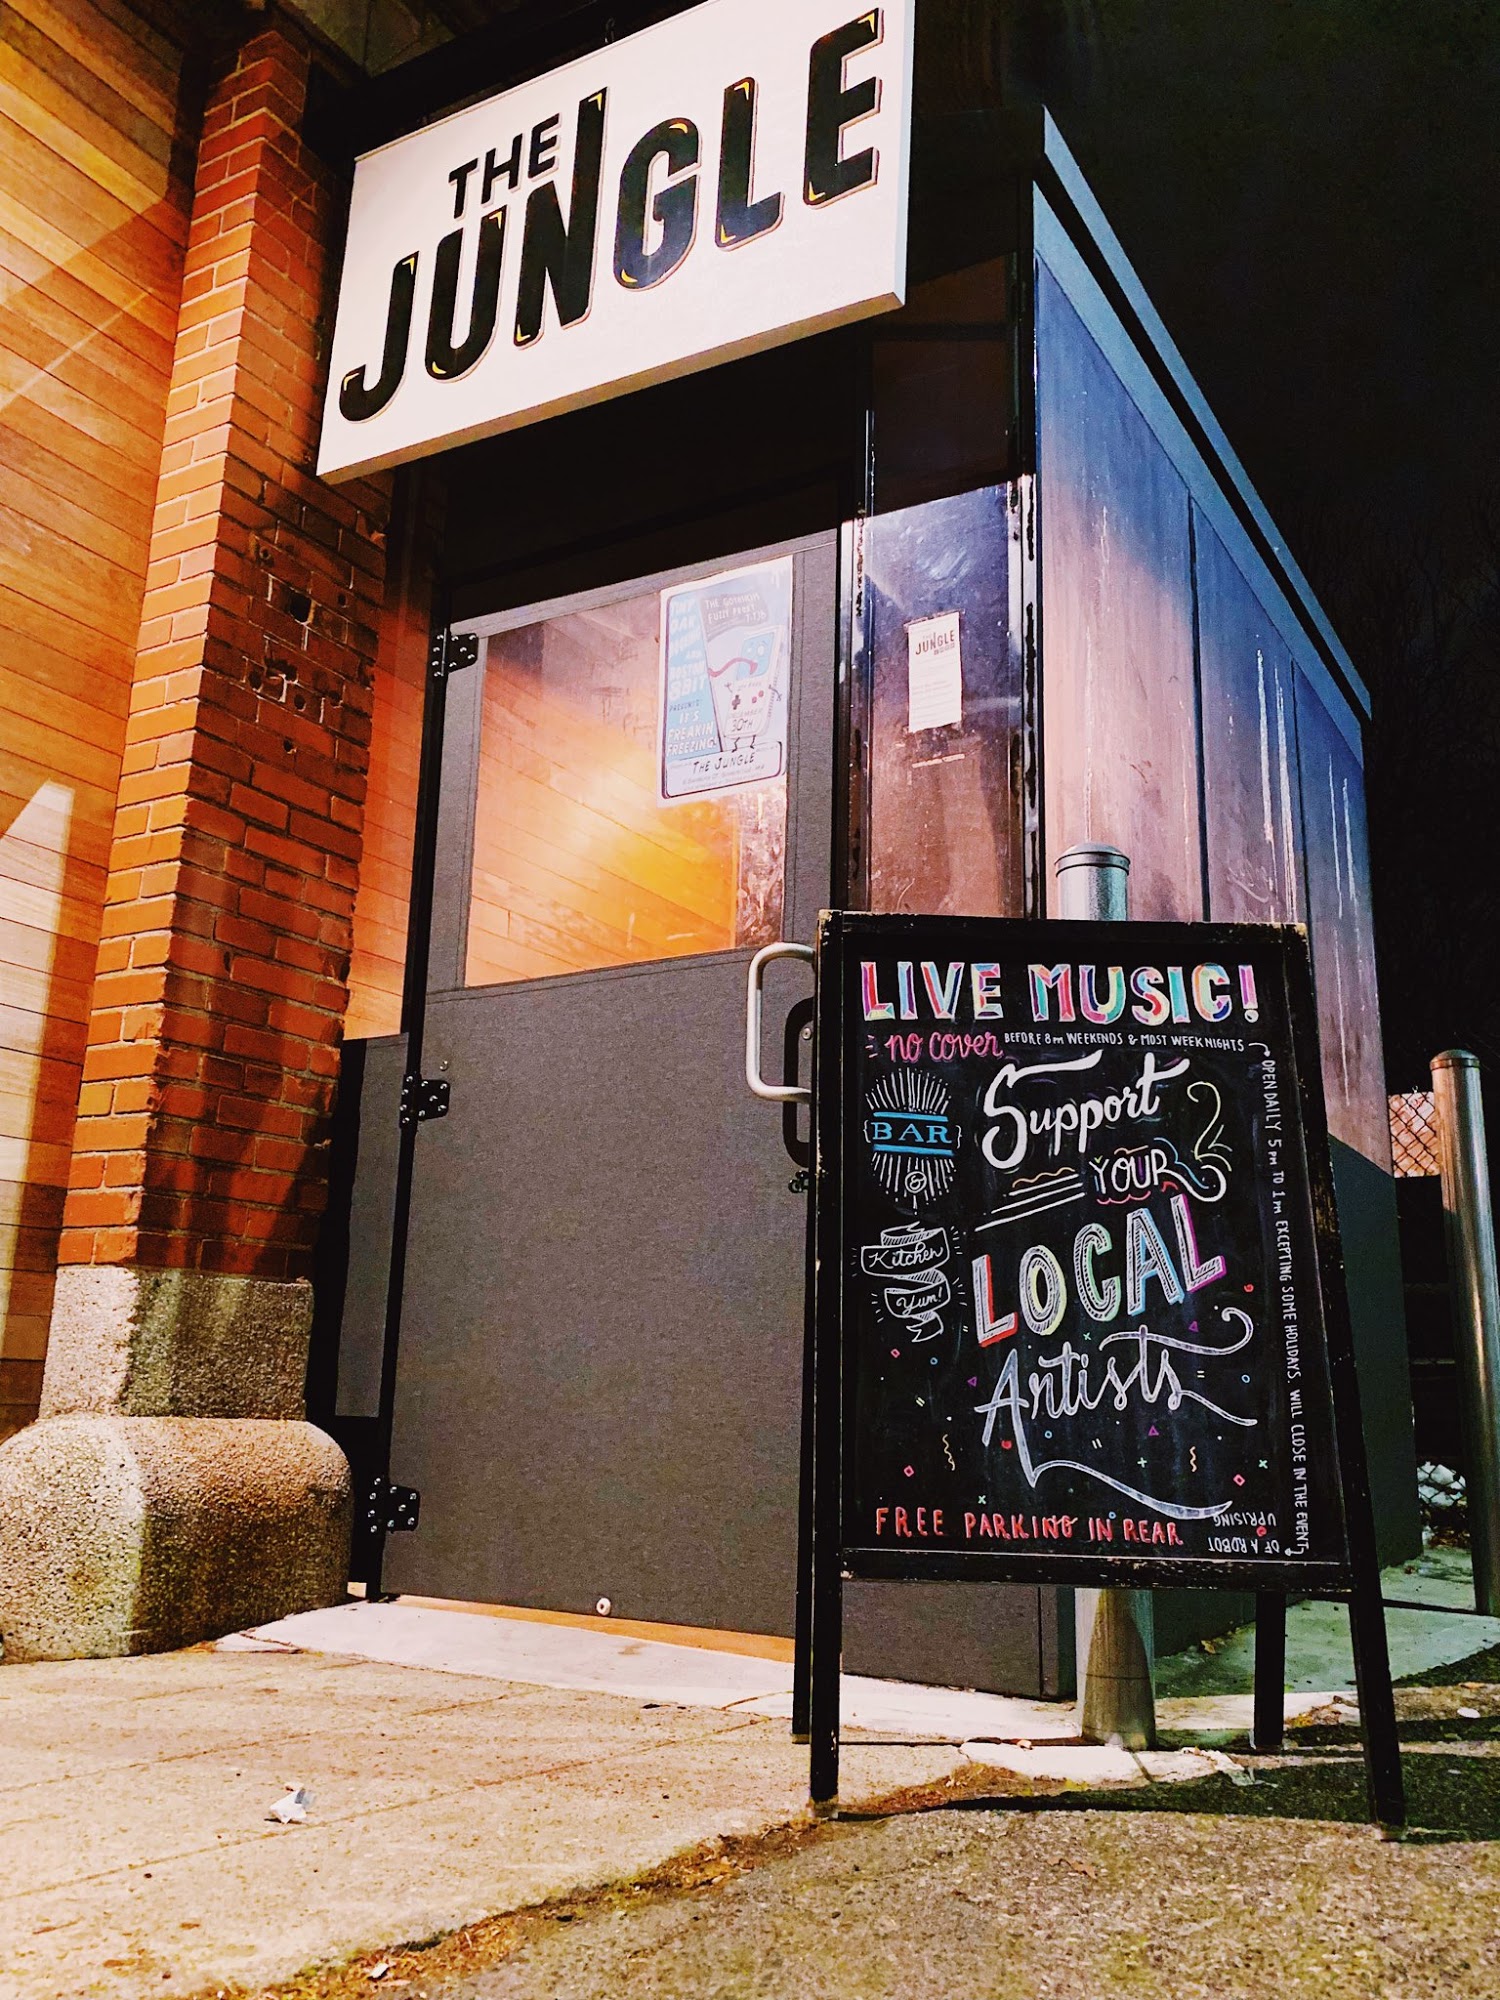 THE
JUNGLE
TINY
OAK
AND
BOSTON
8BIT
PRESENTS
IT'S
FREAKIN
FREEZING!
30TH
THE JUNGLE
JUNGLE
LIVE MUSIC!
no cover BEFORE 8PM WEEKENDS & MOST WEEKNIGHTS
BAR
&
Kitchen
Yum!
Support
YOUR
LOCAL
Artists
FREE PARKING IN REAR
OPEN DAILY 5PM TO 1PM EXCEPTING SOME HOLIDAYS. WILL CLOSE IN THE EVENT
OF A ROBOT
UPRISING